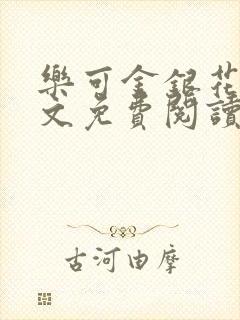 樂可金銀花
文免費閱讀
古河由摩